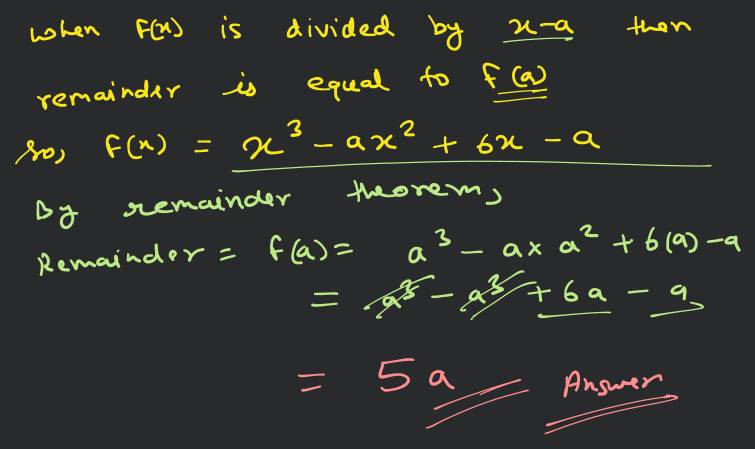 when f(x) is divided by x-a then
remainder is equal to f(a)
so, f(x) = x³ - ax² + 6x - a
By remainder theorem,
Remainder = f(a) = a³ - a x a² + 6(a) - a
= a³ - a³ + 6a - a
= 5a Answer